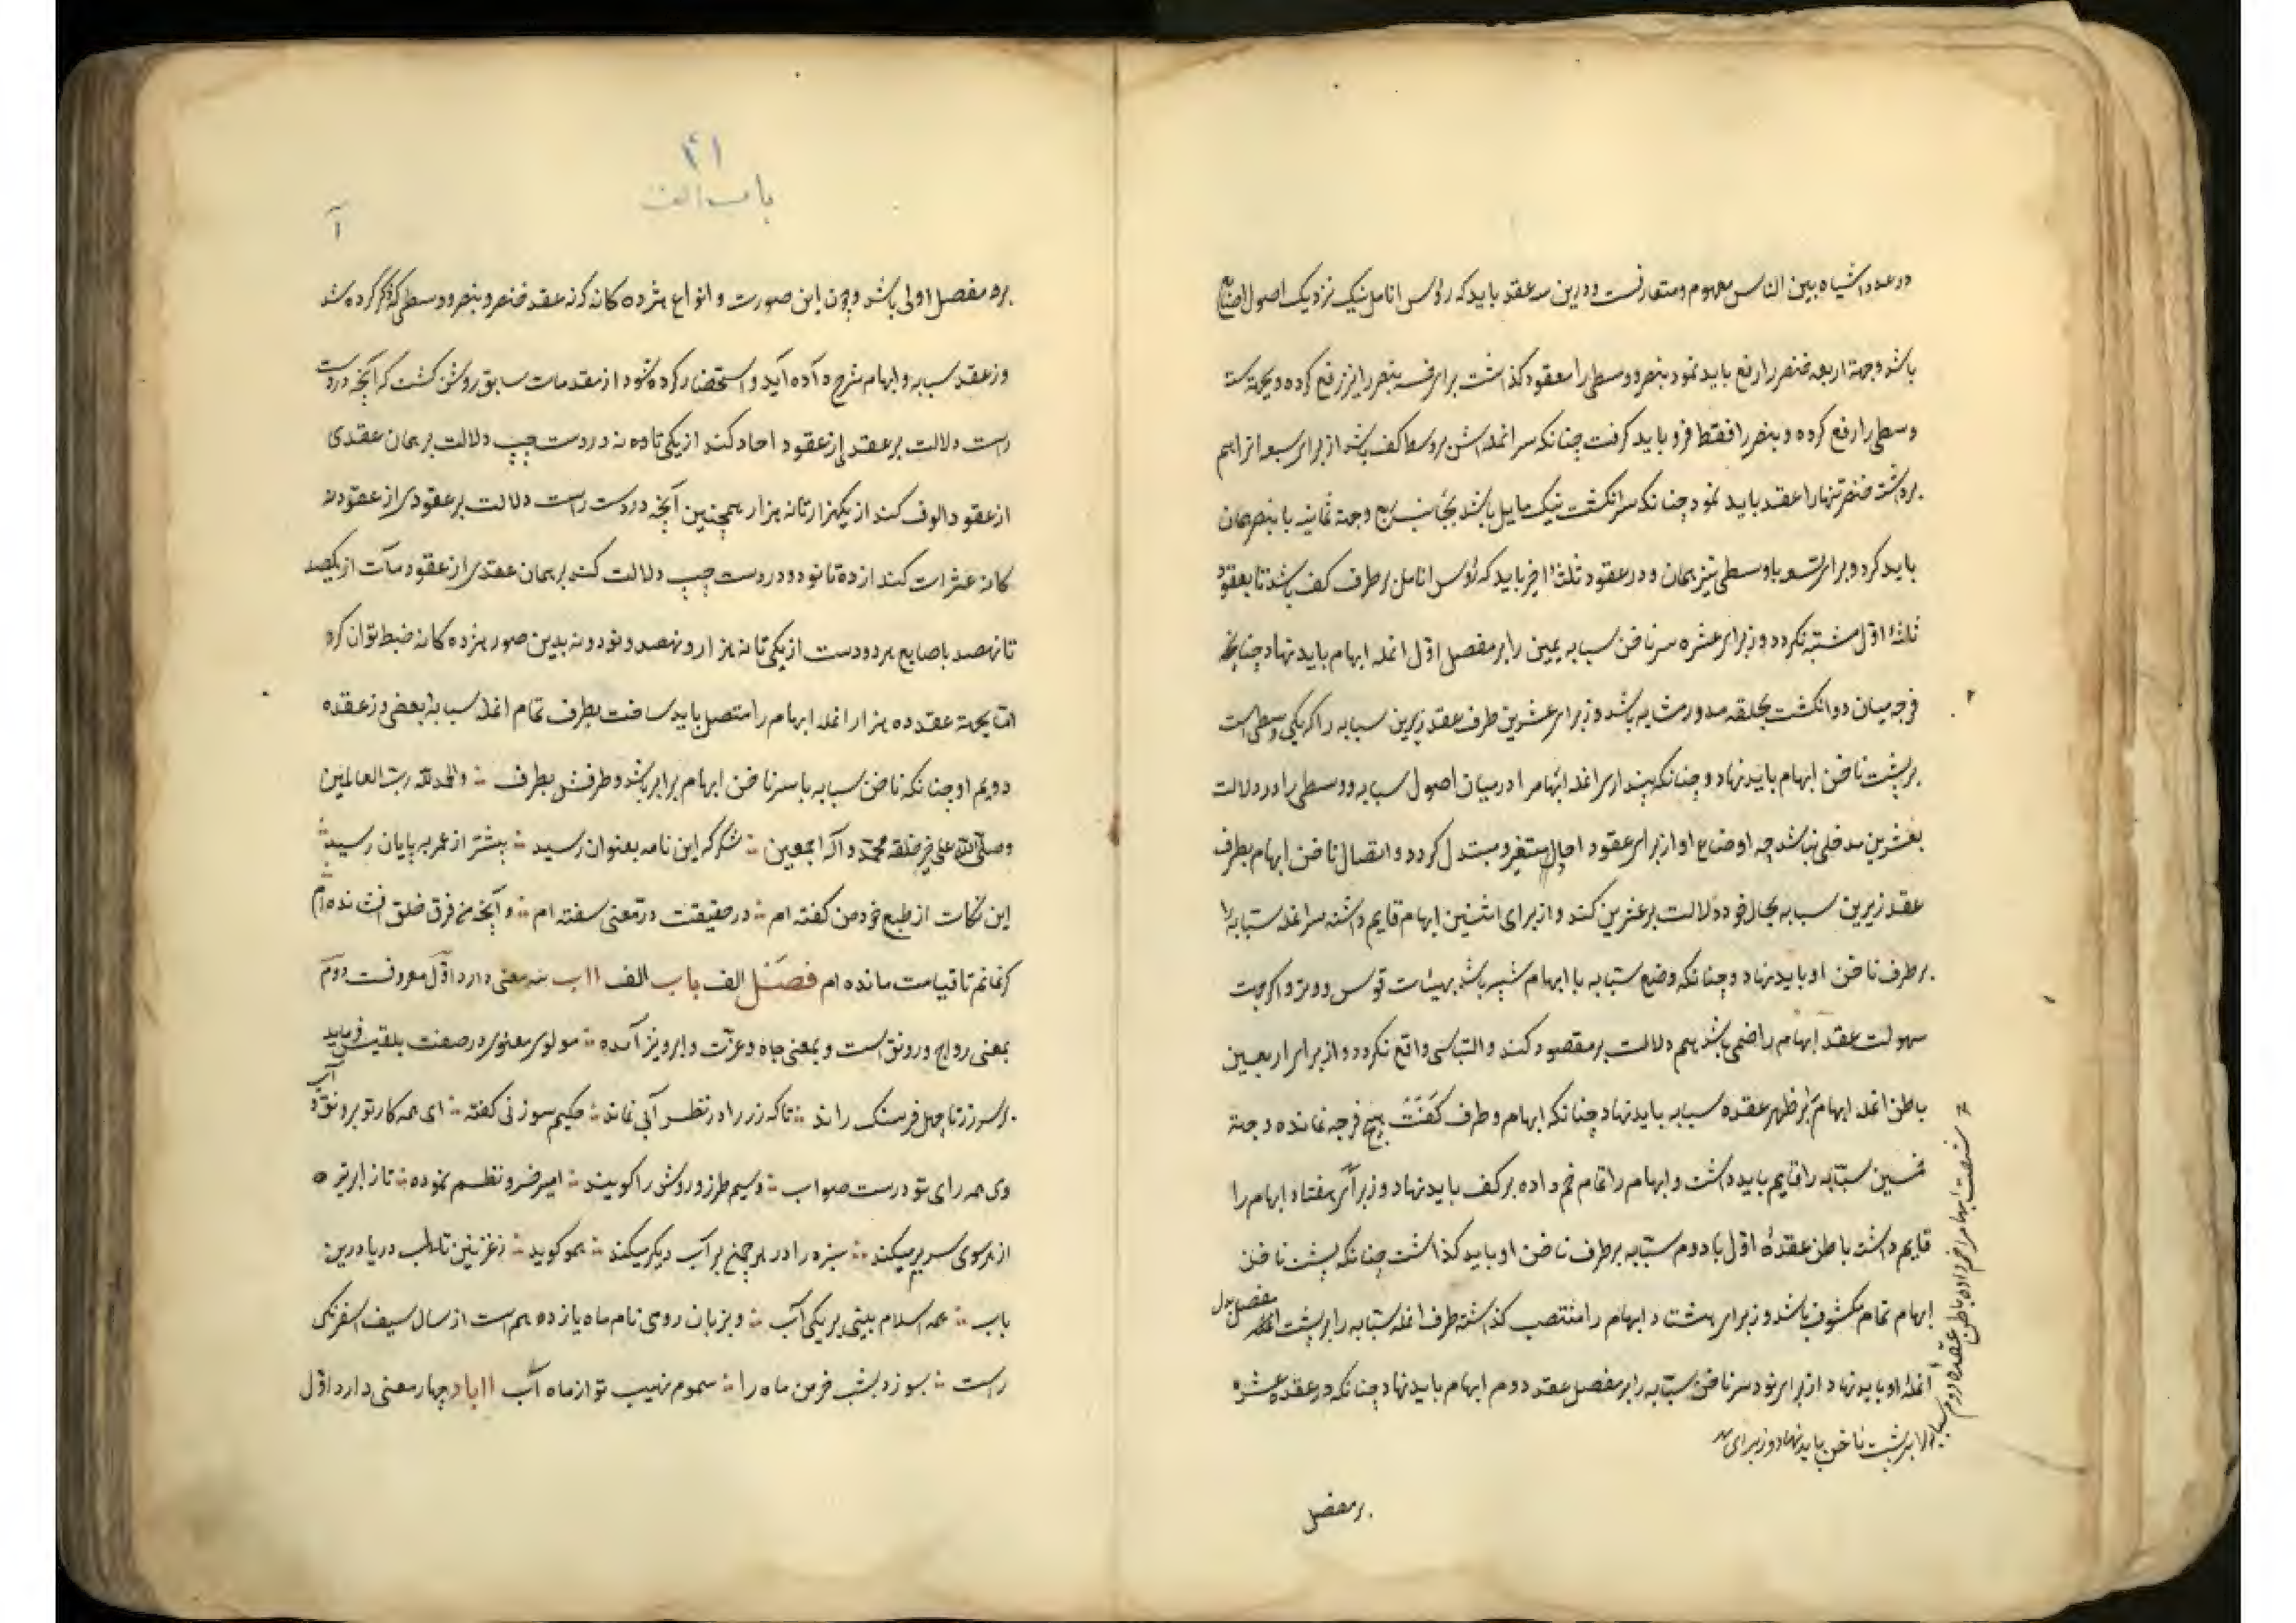 در عدد اشیاء بین الناس معهوم و متعارفست و درین سه عقد باید که رؤس انامل نیک نزدیک اصول اصابع
باشد و جهة اربعه خنصر را رفع باید نمود بنصر و وسطی را معقود گذاشت برای خمسه بنصر را نیز رفع کرده و بجهة سته
وسطی را رفع کرده و بنصر را فقط فرو باید گرفت چنانکه سر انمله اش بر وسط کف باشد از برای سبعه انرا هم
برداشته خنصر تنها را عقد باید نمود چنانکه سر انگشت نیک مایل باشد بجانب رسغ و جهة ثمانیه با بنصر همان
باید کرد و برای تسعه با وسطی نیز همان و در عقود ثلثهٔ اخیر باید که رؤس انامل بر طرف کف باشد تا بعقود
ثلثهٔ اوّل مشتبه نکردد و زبرای عشره سر ناخن سبابه یمین را بر مفصل اوّل انمله ابهام باید نهاد چنانچه
فرجه میان دو انکشت بحلقه مدور مشابه باشد و زبرای عشرین طرف عقد زیرین سبابه را که یکی وسطی است
بر پشت ناخن ابهام باید نهاد و چنانکه پندار سر انمله ابهام را در میان اصول سبابه و وسطی را در دلالت
بعشرین مدخلی نباشد چه اوضاع او از برای عقود احاد متغیر و متبدل کردد و اتصال ناخن ابهام بطرف
عقد زیرین سبابه بحال خود دلالت بر عشرین کند و از برای ثلثین ابهام قایم داشته سر انمله سبابه را
بر طرف ناخن او باید نهاد و چنانکه وضع سبابه با ابهام شبیه باشد بهیئات قوس و وتر و اکر جهت
سهولت عقد ابهام را خمی باشد هم دلالت بر مقصود کند و التباسی واقع نکردد و از برای اربعین
باطن انمله ابهام بر ظهر عقده سبابه باید نهاد چنانکه ابهام و طرف کف هیچ فرجه نمانده و جهة
خمسین سبابه را قایم باید داشت و ابهام را تمام خم داده بر کف باید نهاد و زبرای هفتاد ابهام را
قایم داشت باطن عقدهٔ اوّل یا دوم سبابه بر طرف ناخن او باید گذاشت چنانکه پشت ناخن
ابهام تمام مکشوف باشد و زبرای هشتاد ابهام را منتصب گذاشته طرف انمله سبابه را بر پشت مفصل اول
انملهٔ او باید نهاد از برای نود سر ناخن سبابه را بر مفصل عقد دوم ابهام باید نهاد چنانکه در عقده عشره
شصت ابهام را خم داده باطن عقده دوم سبابه
را بر پشت ناخن باید نهاد و زبرای
بر مفصل
۲۱
باب الف
آ
بر مفصل اولی باشد و چون این صورت و انواع هژده کانه که نه عقد خنصر و بنصر و وسطی که ذکر کرده شد
وز عقد سبابه و ابهام شرح داده آید و استحضار کرده شود از مقدمات سابق روشن کشت که آنچه در دست
راست دلالت بر عقدی از عقود احاد کند از یکی تا نه در دست چپ دلالت بر همان عقدی
از عقود الوف کند از یکهزار تا نه هزار همچنین آنچه در دست راست دلالت بر عقودی از عقود نه
کانه عشرات کند از ده تا نود و در دست چپ دلالت کند بر همان عقدی از عقود مآت از یکصد
تا نهصد باصابع هر دو دست از یکی تا نه هزار و نهصد و نود و نه بدین صور هژده کانه ضبط توان کرد
امّا بجهة عقد ده هزار انمله ابهام را متصل باید ساخت بطرف تمام انمله سبابه و بعضی از عقده
دویم او چنانکه ناخن سبابه با سر ناخن ابهام برابر باشد و طرفش بطرف ؞ والحمد لله رب العالمین
وصلی الله علی خیر خلقه محمد و آله اجمعین ؞ شکر که این نامه بعنوان رسید ؞ پیشتر از عمر بپایان رسید ؞
این نکات از طبع خود من کفته ام ؞ در حقیقت در معنی سفته ام ؞ و آنچه من فرق خلق افشانده ام
کرنمانم تا قیامت مانده ام فصل الف باب الف ااب سه معنی دارد اوّل معروفست دوّم
بمعنی رواج و رونق است و بمعنی جاه و عزّت و ابرو نیز آمده ؞ مولوی معنوی در صفت بلقیس فرماید
بر سر زر تا چهل فرسنک راند ؞ تا که زر را در نظر آبی نماند ؞ حکیم سوزنی کفته ؞ ای همه کار تو برونق و آب
وی همه رای تو درست صواب ؞ وسیم طرز و روش را کویند ؞ امیر خسرو نظم نموده ؞ تا ز ابر تیره
از هر سوی سر بر میکند ؞ سبزه را در هر چمنی بر آب دیکر میکند ؞ هموکوید ؞ ز غزنین تا لب دریا درین
باب ؞ همه اسلام بینی بر یکی آب ؞ و بزبان رومی نام ماه یازدهم است از سال سیف اسفرنکی
راست ؞ بسوزد بشب خرمن ماه را ؞ سموم نهیب تو از ماه آب ااباد چهار معنی دارد اوّل